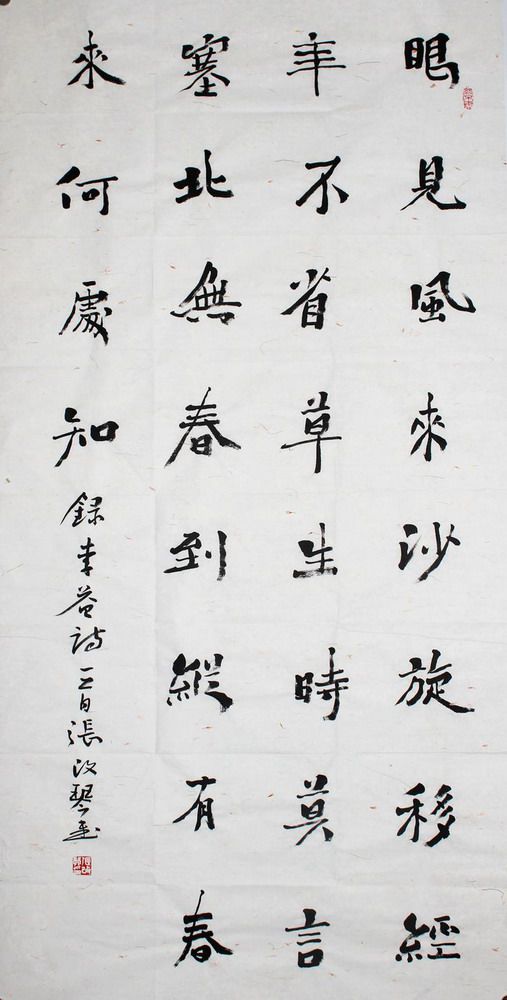 眼見風來沙旋移經
年不省草生時莫言
塞北無春到縱有春
來何處知
錄李益詩一首張改琴書